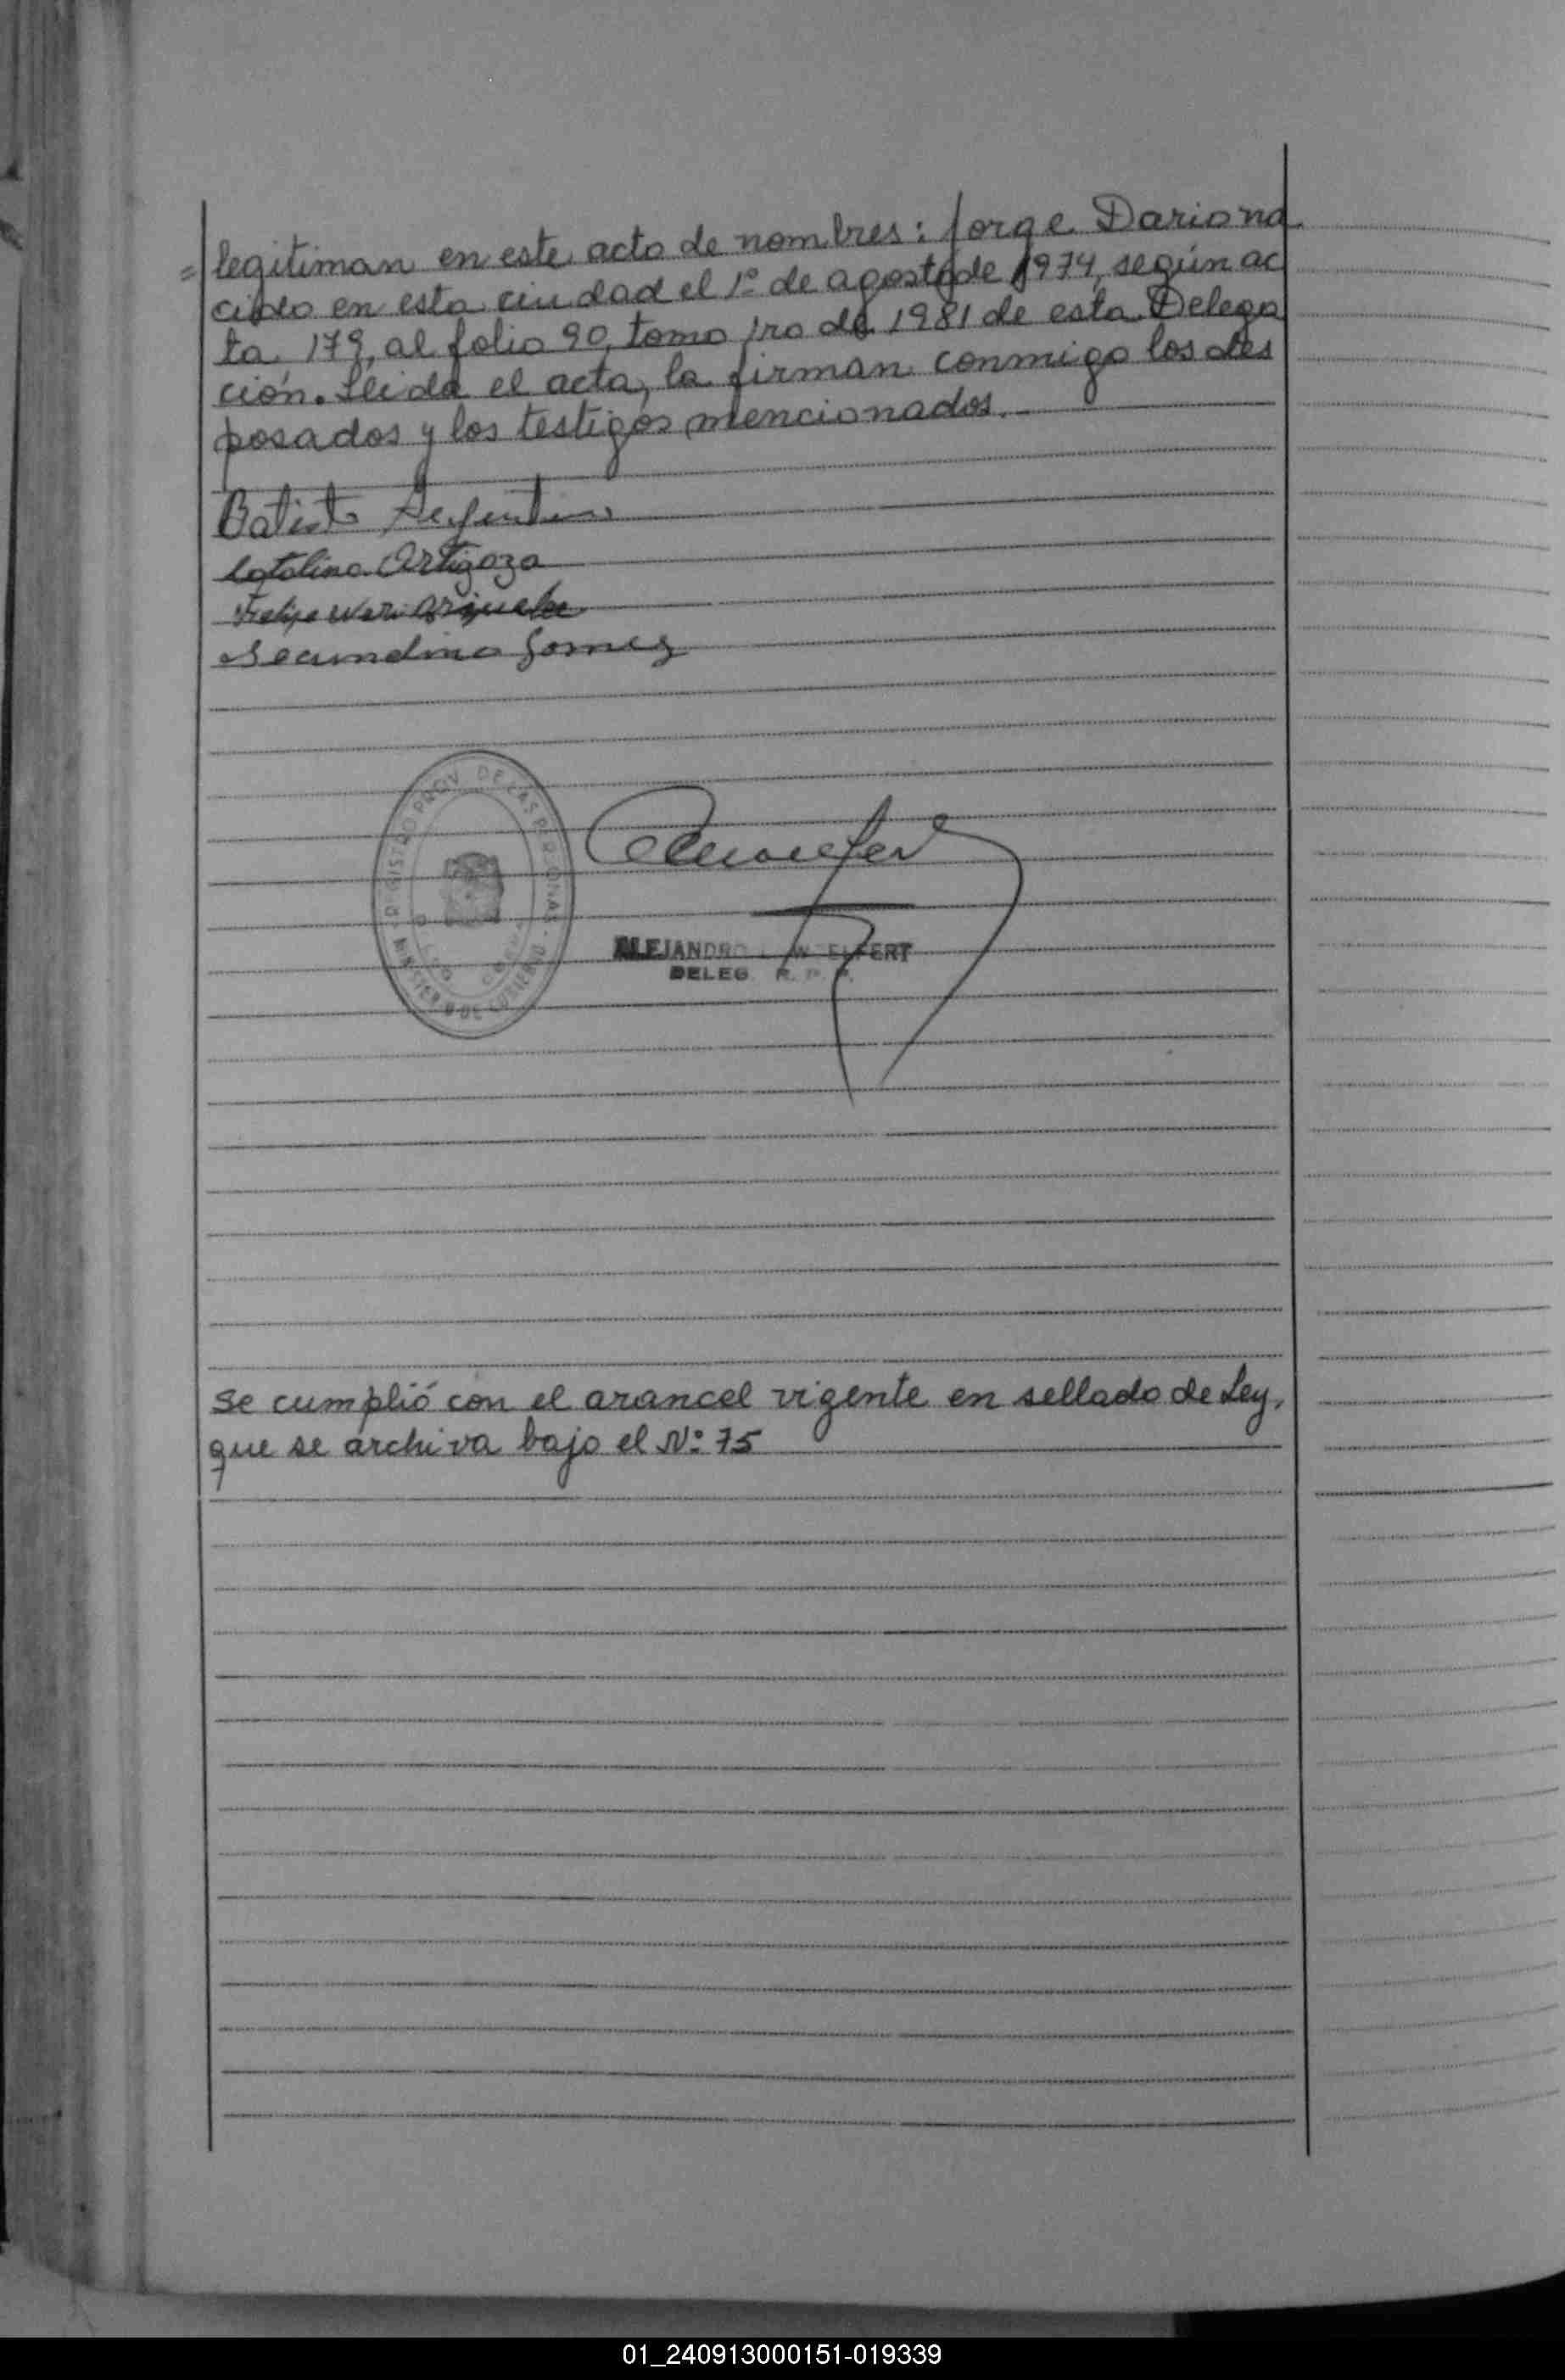 = legitiman en este acto de nombres: Jorge Dario na
cido en esta ciudad el 1º de agosto de 1974, según ac
ta 179, al folio 90, tomo 1ro de 1981 de esta Delega
ción. Leida el acta, la firman conmigo los des
posados y los testigos mencionados.
Batista
Catalina Artigoza
Felipe
Secundino Gomez
REGISTRO PROV. DE LAS PERSONAS
MINISTERIO DE GOBIERNO
ALEJANDRO
DELEG. R. P. P.
Se cumplió con el arancel vigente en sellado de Ley,
que se archiva bajo el Nº 75
01_240913000151-019339